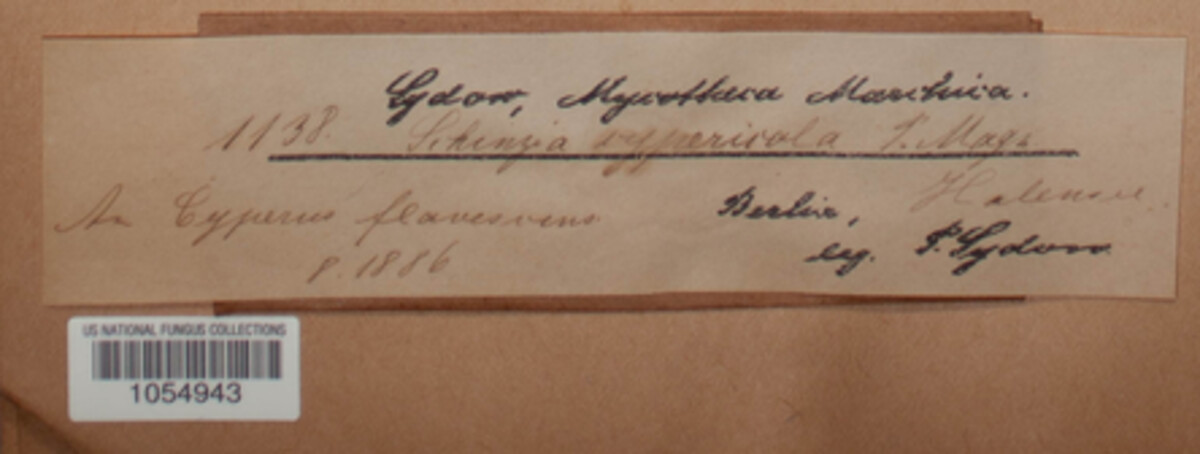 Sydow, Mycotheca Marchica.
1138. Schinzia cypericola P. Magn.
An Cyperus flavescens Berlin, Halensee.
8. 1886 leg. P. Sydow
US NATIONAL FUNGUS COLLECTIONS
1054943